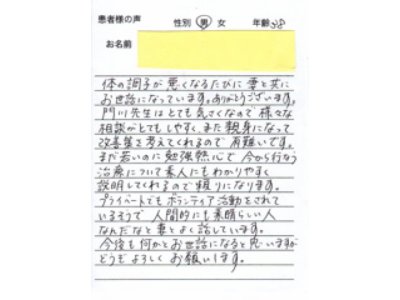 患者様の声 性別 男 女 年齢 38
お名前
体の調子が悪くなるたびに妻と共に
お世話になっています。ありがとうございます。
門川先生はとても気さくなので様々な
相談がとてもしやすく、また親身になって
改善策を考えてくれるので有難いです。
まだ若いのに勉強熱心で今から行なう
治療について素人にもわかりやすく
説明してくれるので頼りになります。
プライベートでもボランティア活動をされて
いるそうで人間的にも素晴らしい人
なんだなと妻とよく話しています。
今後も何かとお世話になると思いますが
どうぞよろしくお願いします。